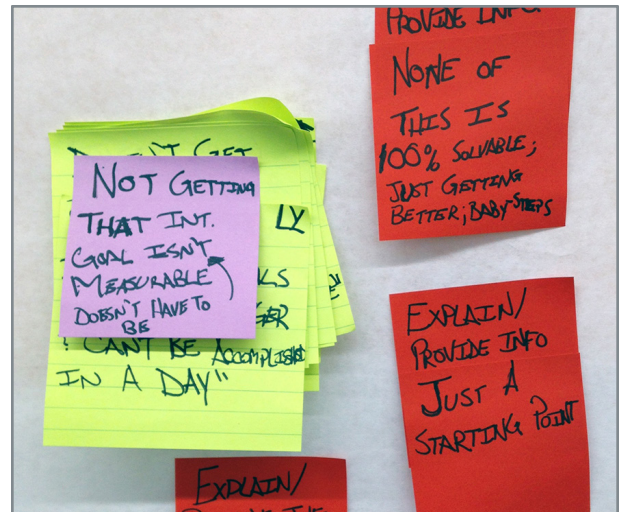 NOT GETTING
THAT INT.
GOAL ISN'T
MEASURABLE
DOESN'T HAVE TO
BE
GET
LY
LS
CAN'T BE ACCOMPLISHED
IN A DAY"
PROVIDE INFO
NONE OF
THIS IS
100% SOLVABLE;
JUST GETTING
BETTER; BABY STEPS
EXPLAIN/
PROVIDE INFO
JUST A
STARTING POINT
EXPLAIN/